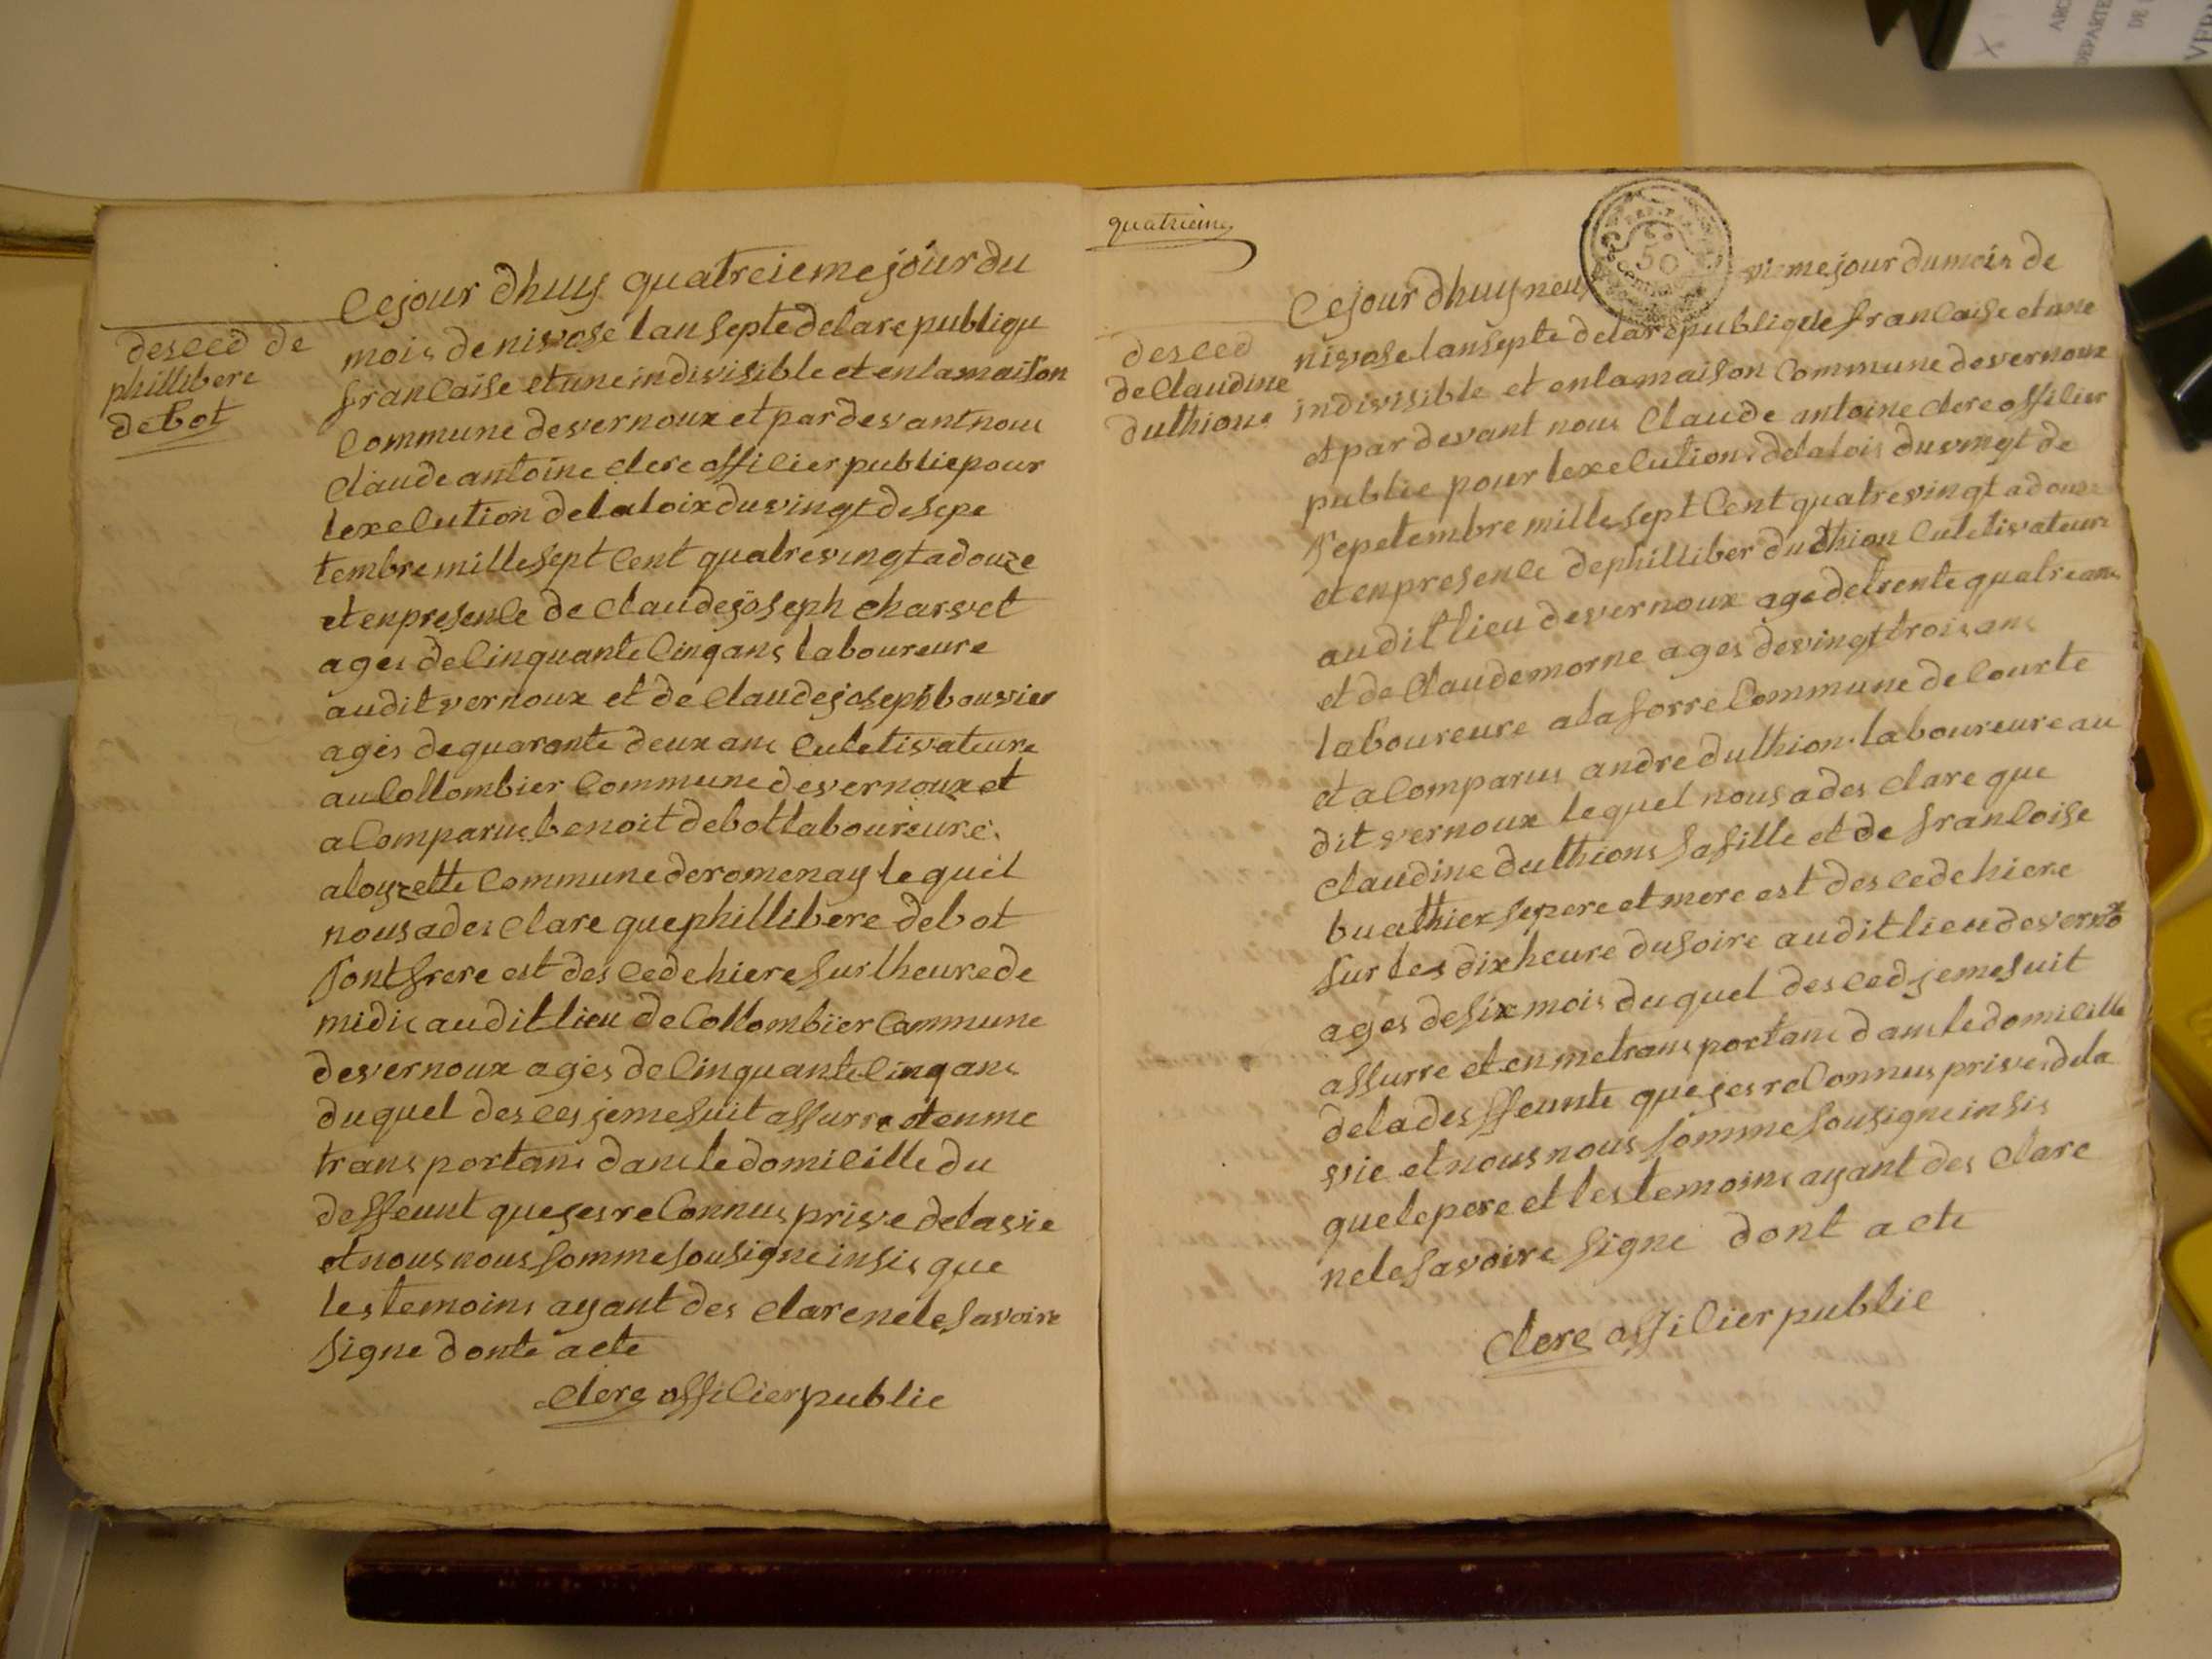 desced de
phillibere
debot
Cejour dhuy quatreiemejour du
mois de nivose lan septe delarepubliqu
francaise etune indivisible et enlamaison
Commune devernoux et pardevant nous
claude antoine clerc officier publicpour
lexecution delaloix duvingt desepe
tembre mille sept Cent quatrevingtadouze
et enpresence de claudejoseph charvet
ages delinquante Cinqans laboureure
audit vernoux et de claudejosephbouvier
ages dequarante deux ans culetivateure
auCollombier Commune devernoux et
aComparus benoit debot laboureure
aloyzette Commune deromenay lequel
nousades clare quephillibere debot
sont frere est descede hiere surlheurede
midis auditlieu de Collombier Commune
devernoux ages deCinquante Cinqans
duquel desces jemesuit assurre etenme
transportans dansledomicille du
deffeunt quejesreConnus prive delavie
etnousnous somme sousigneinsis que
lestemoins ayant des clarenelesavoire
signe donte acte
clerc officier public
quatrieme
desced
de Claudine
duthions
Cejour dhuy neu vieme jour dumois de
nivose lansepte delarepublique francaise et une
indivisible et enlamaison Commune devernoux
et pardevant nous Claude antoine clerc officier
public pour lexecution delaloi duvingt de
sepetembre mille sept Cent quatrevingt adouze
et enpresence dephilliber duthion culetivateure
audit lieu devernoux age detrente quatreans
et de Claudemorne ages devingt troisans
laboureure alaforre Commune deCourte
et aComparus andre duthion laboureure au
dit vernoux lequel nousades clare que
claudine duthions safille et de francoise
buathier sepere et mere est descede hiere
sur les dix heure dusoire audit lieu devernox
ages desix mois duquel desced jemesuit
assurre et en metransportans dansledomicille
delades ffeunte que jesreConnus privedela
vie et nous nous somme sousigne insis
quelepere et lestemoins ayant des clare
nelesavoire signe dont acte
clerc officier public
50
ARC
DEPARTE
DE